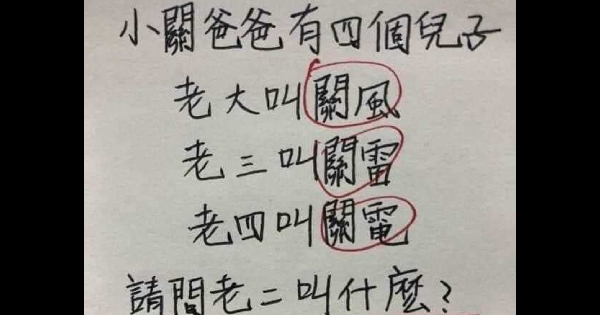 小關爸爸有四個兒子
老大叫關風
老三叫關雷
老四叫關電
請問老二叫什麼?